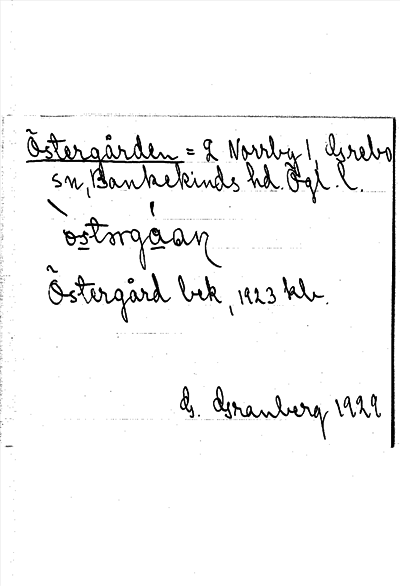 Östergården = 2 Norrby 1, Grebo
sn, Bankekinds hd. Ögl. l.
òstərgáaɳ
Östergård bek, 1923 kbr.
G. Granberg 1929